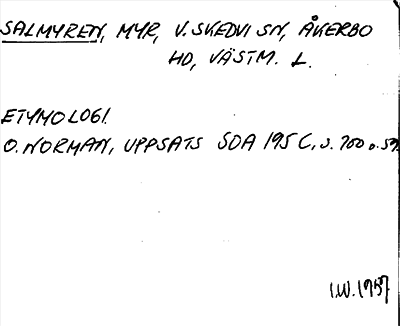 SALMYREN, MYR, V. SKEDVI SN, ÅKERBO
HD, VÄSTM. L.
ETYMOLOGI.
O. NORMAN, UPPSATS SOA 195 C, S. 700 o. 59.
I.W. 1957